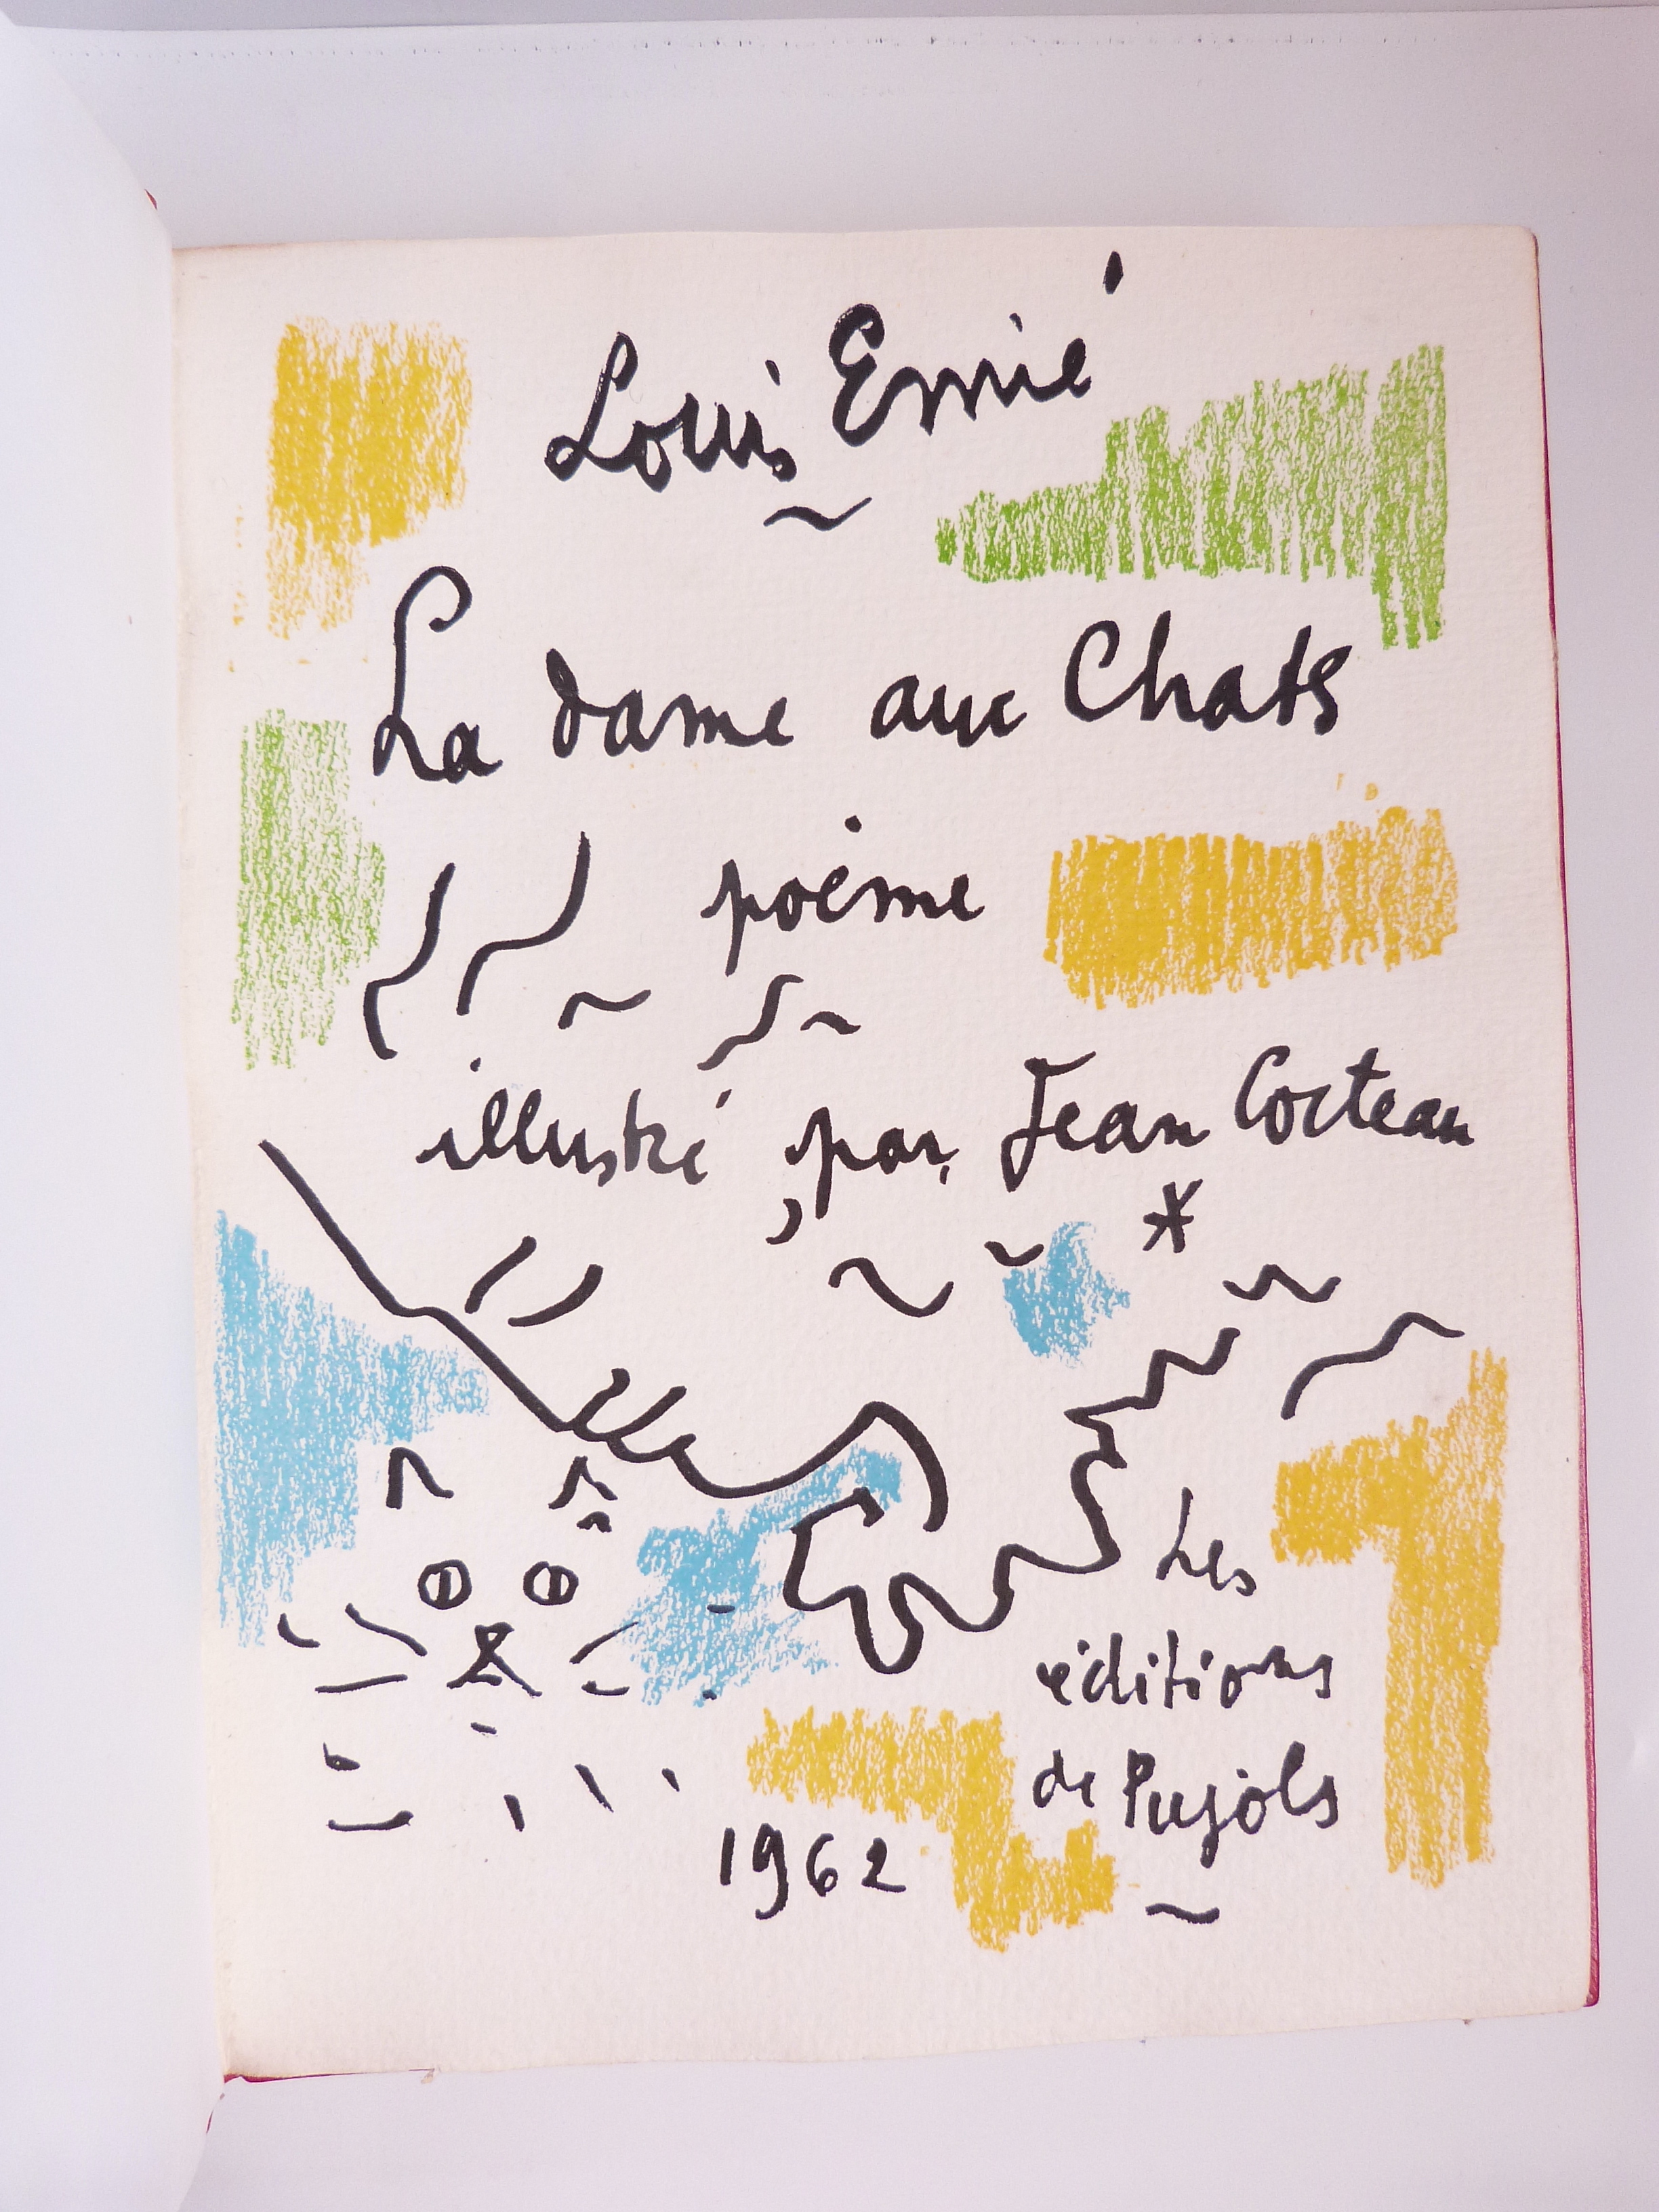 Louis Emié
La dame aux Chats
poème
illustré par Jean Cocteau
*
Les
éditions
de Pujols
1962